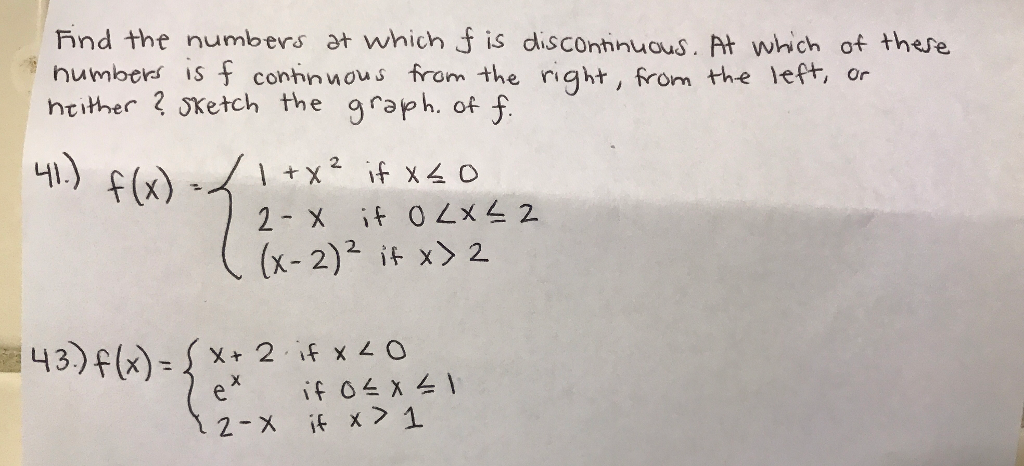 Find the numbers at which f is discontinuous. At which of these
numbers is f continuous from the right, from the left, or
neither? Sketch the graph. of f.
41.) f(x) = { 1 + x² if x ≤ 0
2 - x if 0 < x ≤ 2
(x - 2)² if x > 2
43.) f(x) = { x + 2 if x < 0
eˣ if 0 ≤ x ≤ 1
2 - x if x > 1